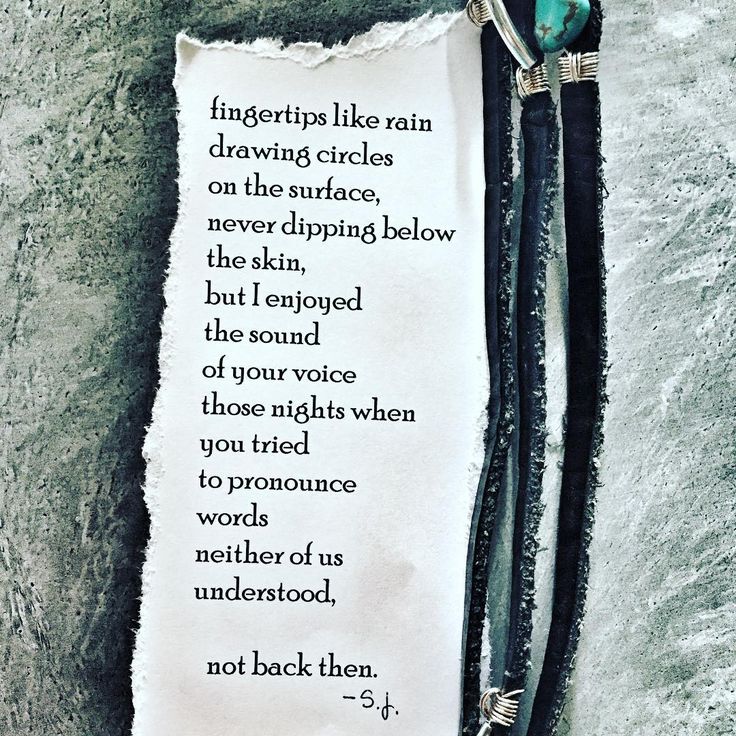 fingertips like rain
drawing circles
on the surface,
never dipping below
the skin,
but I enjoyed
the sound
of your voice
those nights when
you tried
to pronounce
words
neither of us
understood,
not back then.
–S.J.